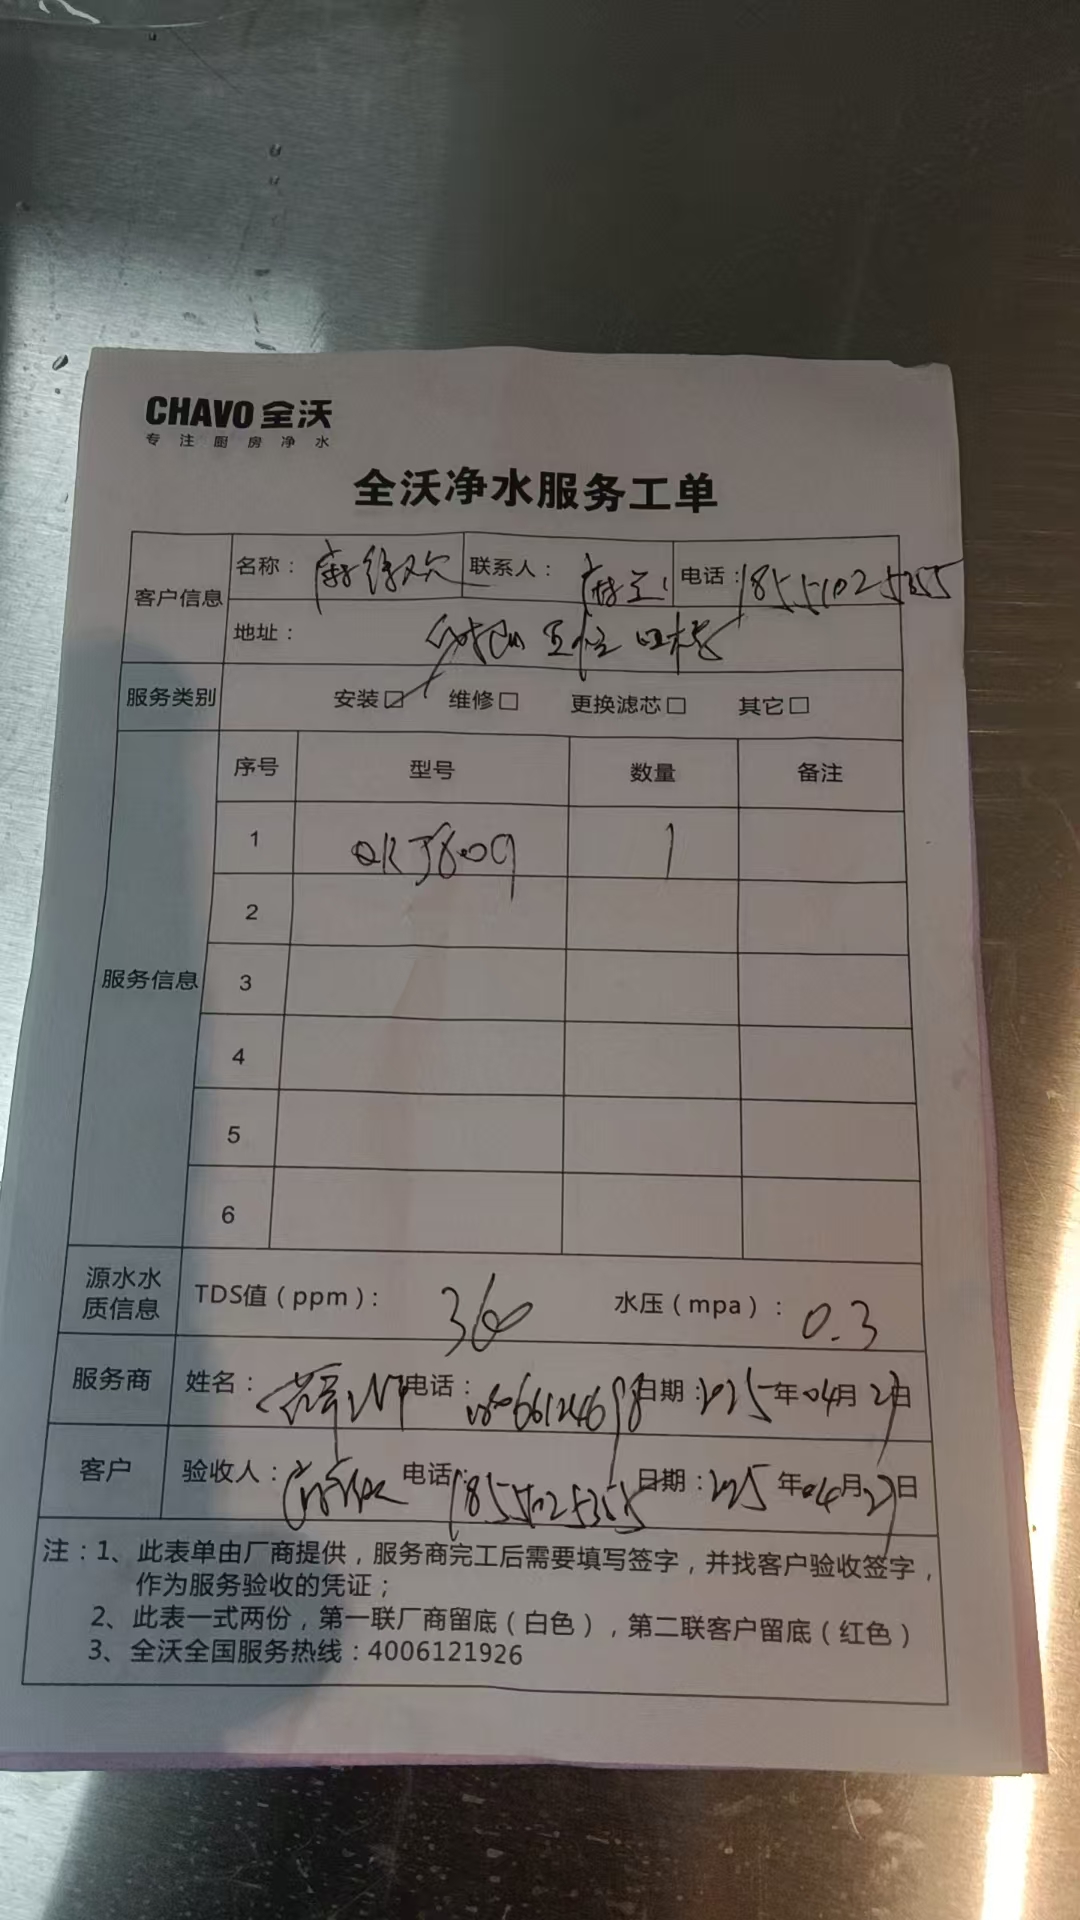 CHAVO 全沃
专注厨房净水
全沃净水服务工单
客户信息 名称： 联系人： 电话：18551025355
地址：
服务类别 安装☑ 维修□ 更换滤芯□ 其它□
服务信息 序号 型号 数量 备注
1 1
2
3
4
5
6
源水水质信息 TDS值（ppm）：360 水压（mpa）：0.3
服务商 姓名： 电话： 日期：2025年04月27日
客户 验收人： 电话：18551025355 日期：2025年04月27日
注：1、此表单由厂商提供，服务商完工后需要填写签字，并找客户验收签字，
作为服务验收的凭证；
2、此表一式两份，第一联厂商留底（白色），第二联客户留底（红色）
3、全沃全国服务热线：4006121926